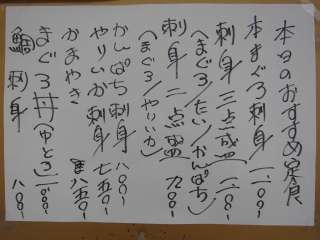 本日のおすすめ定食
本まぐろ刺身 一、一〇〇-
刺身三点盛 一、一〇〇-
(まぐろ/たい/かんぱち)
刺身二点盛 九〇〇-
(まぐろ/やりいか)
かんぱち刺身 八〇〇-
やりいか刺身 七五〇-
かまやき 八五〇-
まぐろ丼(中とろ) 一、〇〇〇-
鯛刺身 八〇〇-